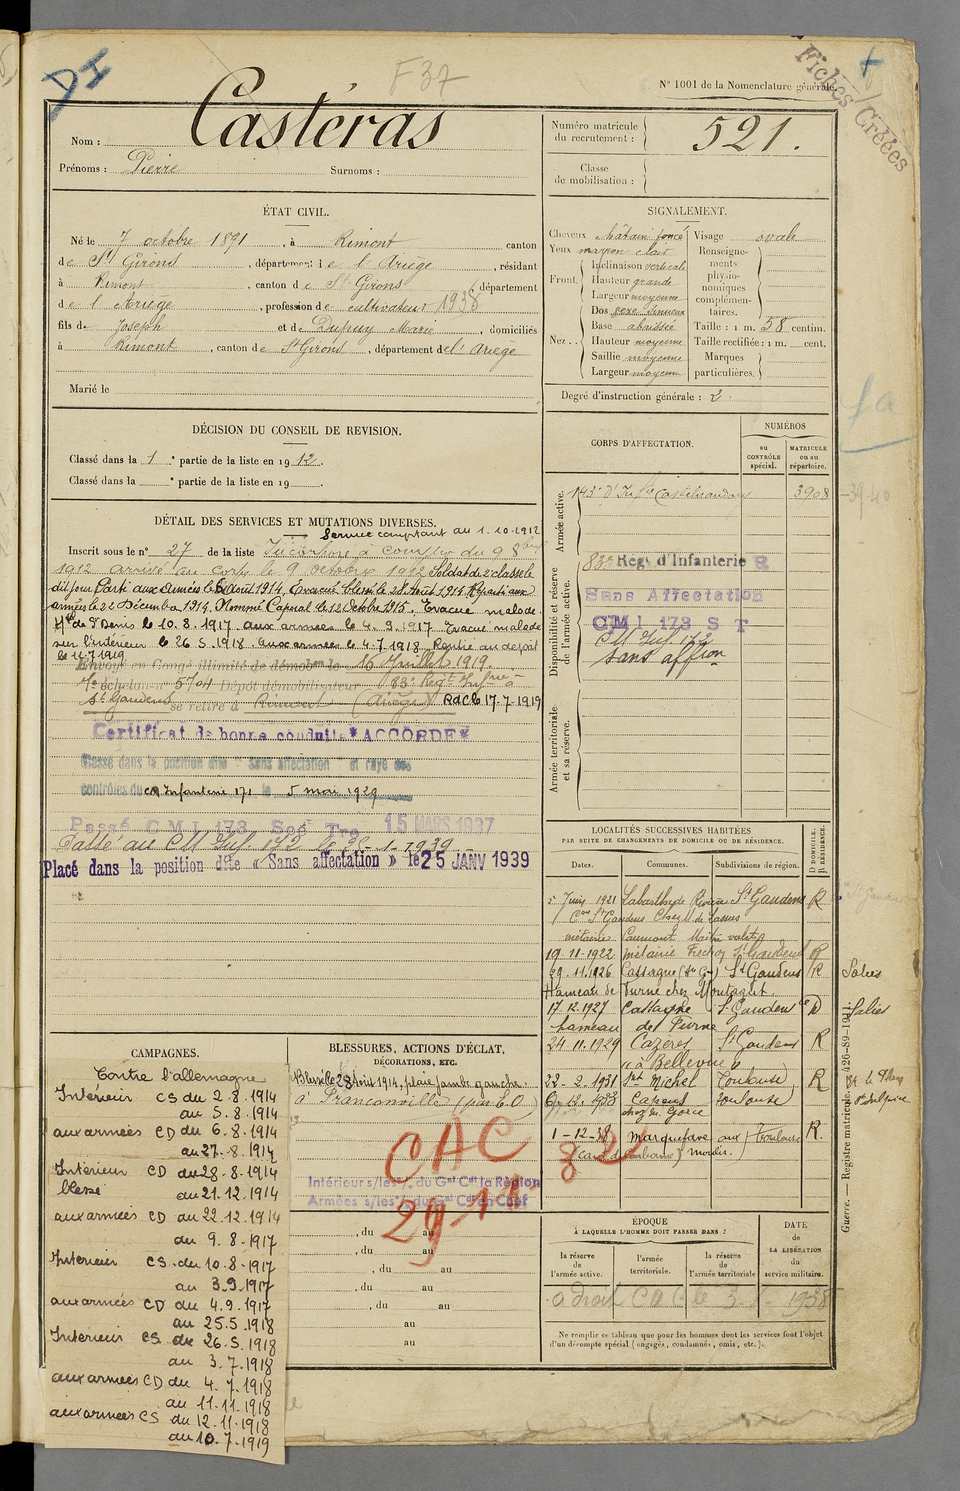 DI
F 37
N° 1001 de la Nomenclature générale.
Fiches Créées
Nom : Castéras
Prénoms : Pierre Surnoms :
Numéro matricule du recrutement : 521.
Classe de mobilisation :
ÉTAT CIVIL.
Né le 7 octobre 1891, à Rimont canton
de St Girons, département de l'Ariège, résidant
à Rimont, canton de St Girons, département
de l'Ariège, profession de cultivateur 1938
fils de Joseph et de Dupuy Marie, domiciliés
à Rimont, canton de St Girons, département de l'Ariège
Marié le
SIGNALEMENT.
Cheveux châtain foncé
Yeux marron clair
Front. Inclinaison verticale
Hauteur grande
Largeur moyenne
Nez . . Dos
Base abaissée
Hauteur moyenne
Saillie moyenne
Largeur moyenne
Visage ovale
Renseignements physionomiques complémentaires.
Taille : 1 m. 58 centim.
Taille rectifiée : 1 m. cent.
Marques particulières.
Degré d'instruction générale : 2
DÉCISION DU CONSEIL DE REVISION.
Classé dans la 1e partie de la liste en 1912.
Classé dans la e partie de la liste en 19 .
DÉTAIL DES SERVICES ET MUTATIONS DIVERSES.
Service comptant du 1.10.1912
Inscrit sous le n° 27 de la liste Incorporé à compter du 9 8bre
1912 arrivé au corps le 9 octobre 1912 Soldat de 2e classe le
dit jour Parti aux armées le 6 août 1914. Evacué blessé le 28 Août 1914 Reparti aux
armées le 22 Décembre 1914. Nommé Caporal le 12 Octobre 1915. Evacué malade
St Denis le 10.8.1917 aux armées le 4.9.1917 Evacué malade
sur l'intérieur le 26.5.1918 aux armées le 4.7.1918 Rentré au dépôt
le 11.7.1919
Envoyé en Congé illimité de démobon le 16 Juillet 1919.
7e échelon n° 5704 Dépôt démobilisateur 83e Régt Infrie à
St Gaudens se retire à Rimont (Ariège) RdC le 17.7.1919
Certificat de bonne conduite *ACCORDÉ*
Classé dans la position dite "Sans affectation" et rayé des
contrôles du CM Infanterie 171 le 5 mai 1929
Passé C M I 173 Seg Tre 15 MARS 1937
Passé au CM Inf. 172 le 25-1-1939
Placé dans la position dite « Sans affectation » le 25 JANV 1939
CORPS D'AFFECTATION.
NUMÉROS
au CONTRÔLE spécial.
MATRICULE ou au répertoire.
Armée active.
143e d'Infie Castelnaudary 3908
39-40
Disponibilité et réserve de l'armée active.
83e Régt d'Infanterie R
Sans Affectation
C M I 173 S T
CM Inf. 172
sans affion
Armée territoriale et sa réserve.
LOCALITÉS SUCCESSIVES HABITÉES
PAR SUITE DE CHANGEMENTS DE DOMICILE OU DE RÉSIDENCE.
Dates. Communes. Subdivisions de région. D DOMICILE. R RÉSIDENCE.
Juin 1921 Labarthe de Rivière St Gaudens R
Con St Gaudens Chez M. de Lassus
métairie Caumont Maître valet
19.11.1922 métairie St Gaudens R
29.11.1926 Cassagne (Hte Gne) St Gaudens R Salies
Hameau de Furne chez Montagut.
17.12.1927 Cassagne St Gaudens D Salies
hameau de Furne
24 11.1929 Cazères St Gaudens R
"à Bellevue"
22-2-1931 St Michel Toulouse R
12.1933 Cazères Toulouse
chez M. Gorce
1-12-38 Marquefave Toulouse R.
CAMPAGNES.
Contre l'allemagne
Intérieur CS du 2.8.1914
au 5.8.1914
aux armées CD du 6.8.1914
au 27.8.1914
Intérieur CD du 28.8.1914
blessé au 21.12.1914
aux armées CD du 22.12.1914
au 9.8.1917
Intérieur CS du 10.8.1917
au 3.9.1917
aux armées CD du 4.9.1917
au 25.5.1918
Intérieur CS du 26.5.1918
au 3.7.1918
aux armées CD du 4.7.1918
au 11.11.1918
aux armées CS du 12.11.1918
au 10.7.1919
BLESSURES, ACTIONS D'ÉCLAT,
DÉCORATIONS, ETC.
Blessé le 28 Août 1914, plaie jambe gauche
à Franconville (par E.O)
CAC
82
29-11
Intérieur s/les °/. du Gal Cdt la Région
Armées s/les °/. du Gal Cdt en Chef
, du au
, du au
, du au
, du au
, du au
au
au
ÉPOQUE
À LAQUELLE L'HOMME DOIT PASSER DANS :
la réserve de l'armée active.
l'armée territoriale.
la réserve de l'armée territoriale
DATE DE LA LIBÉRATION du service militaire.
a droit CAC le 3 1938
Ne remplir ce tableau que pour les hommes dont les services font l'objet
d'un décompte spécial (engagés, condamnés, omis, etc.).
Guerre. — Registre matricule. 426-89-1911.